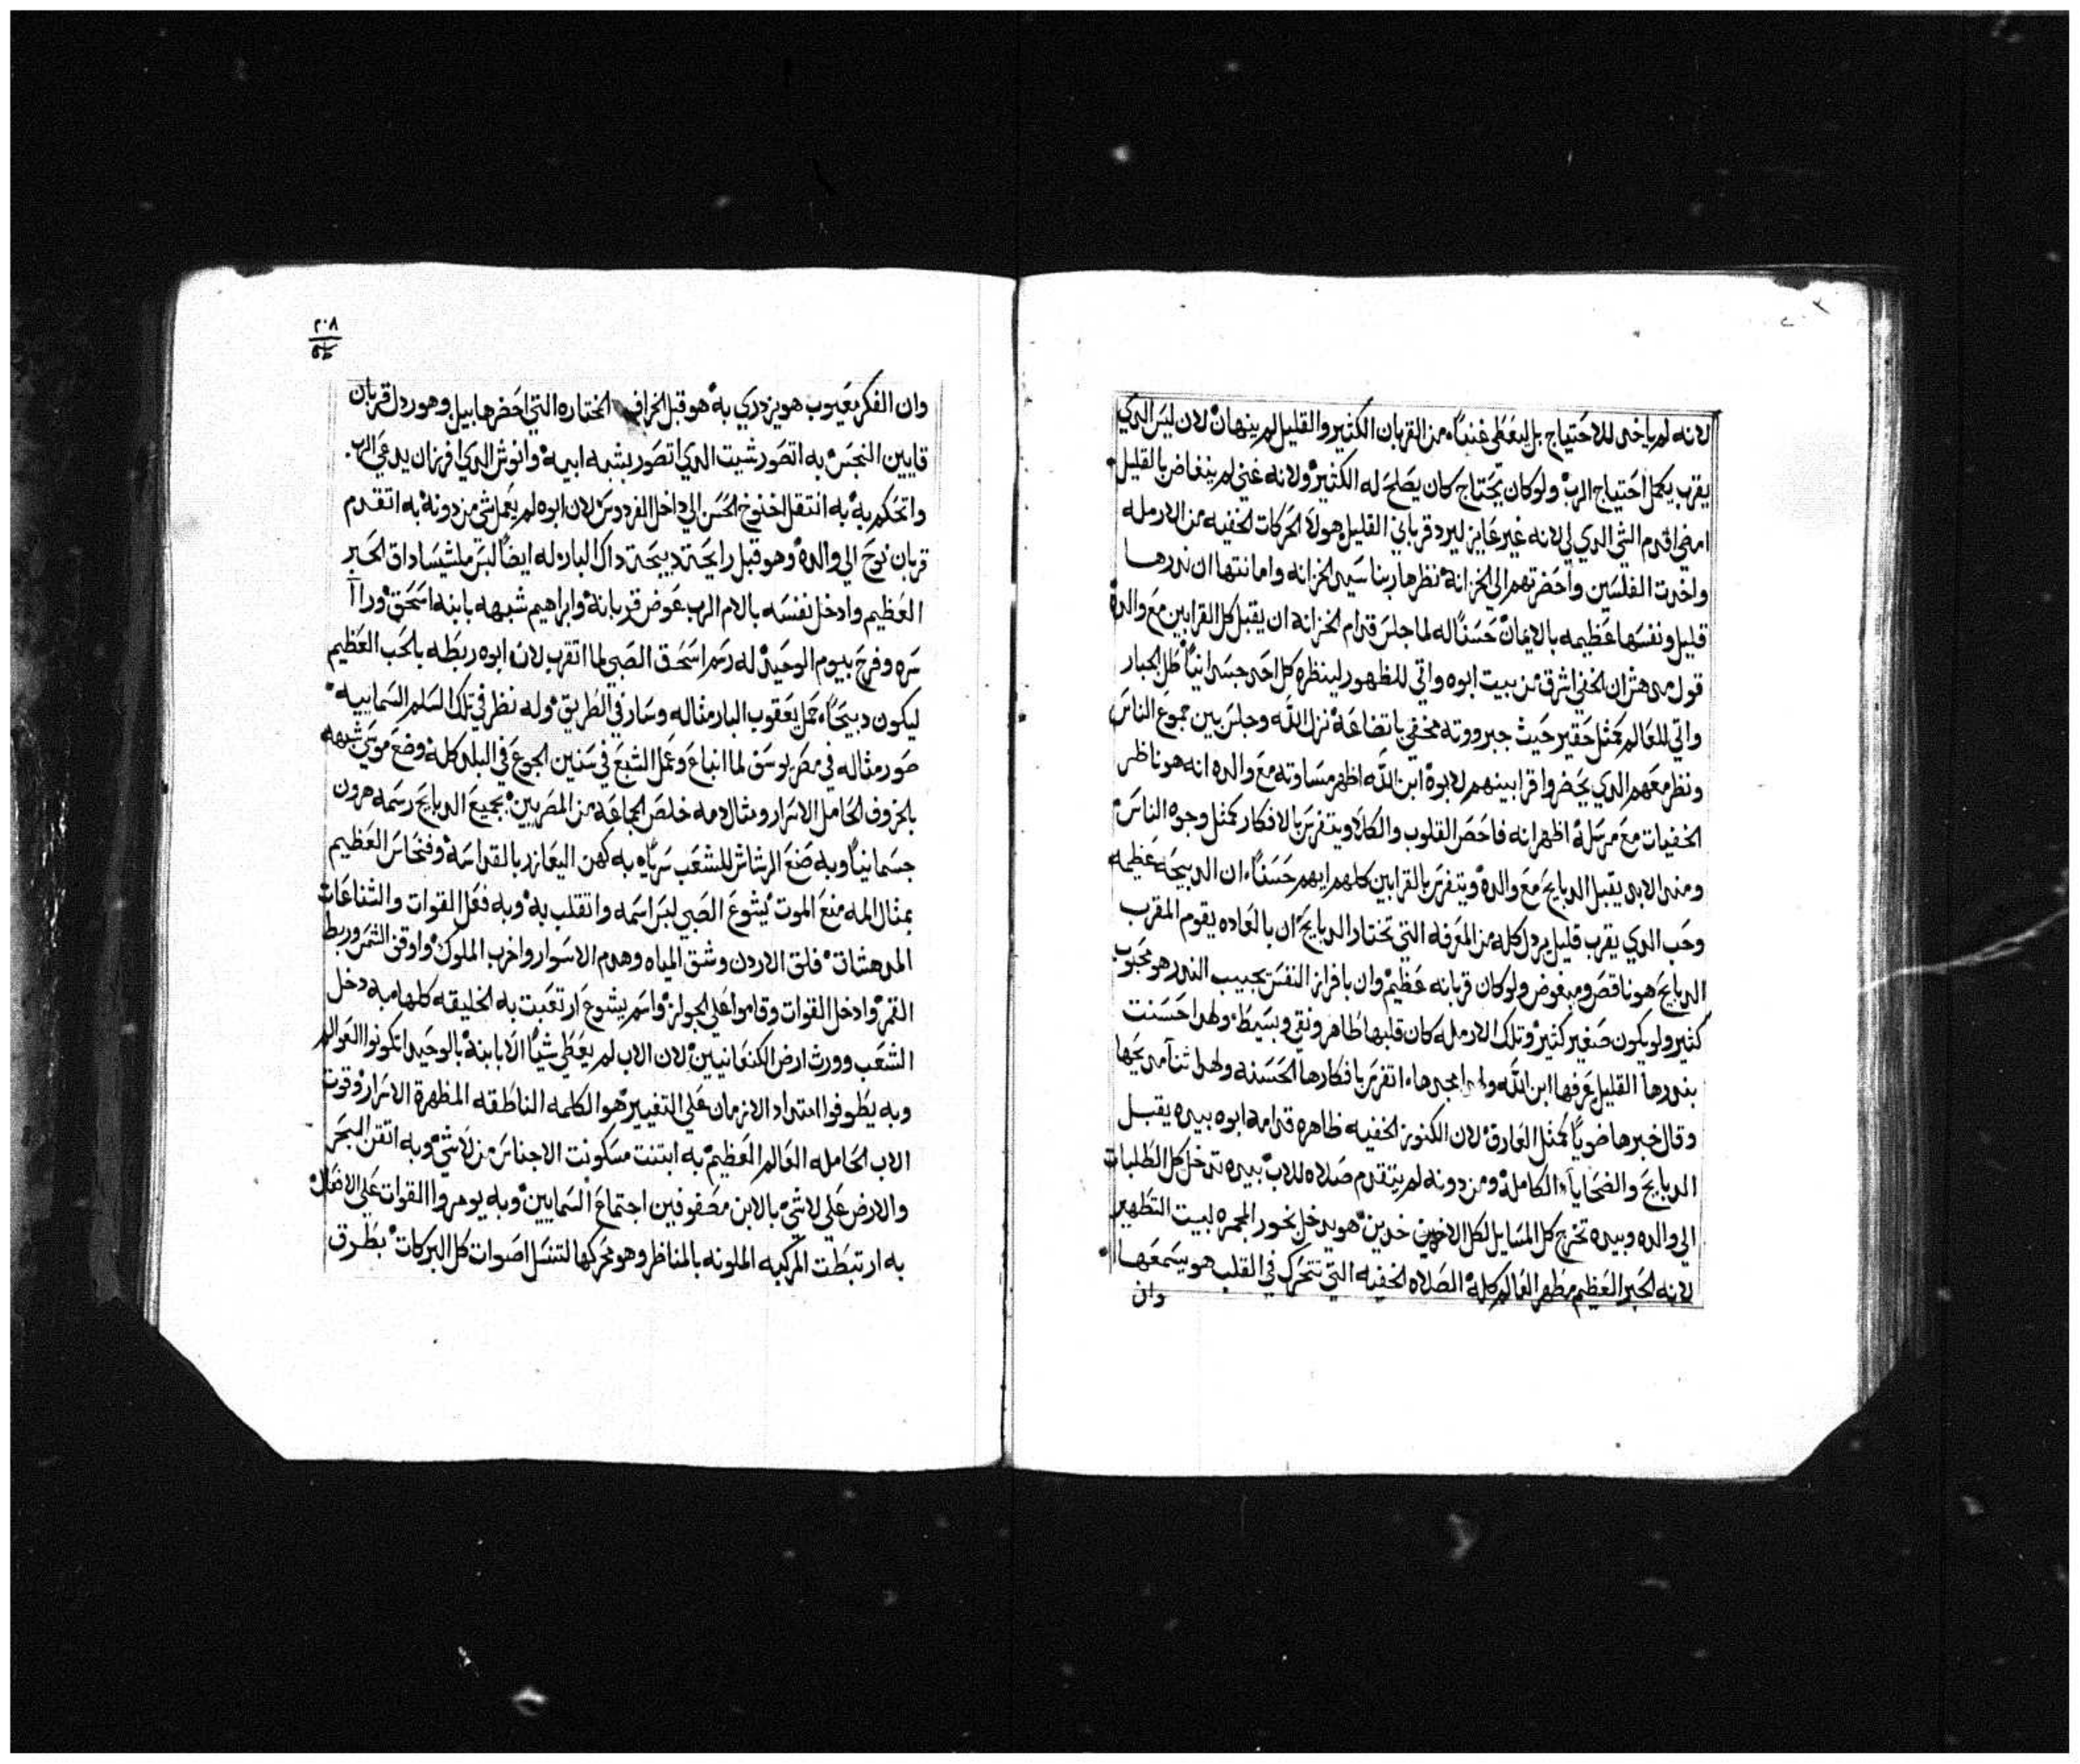 لانه لم ياخد للاحتياج بل ليعطي غنداً من القربان الكثير والقليل لم ينهان لان ليس الدي
يقرب يكمل احتياج الرب ولو كان يحتاج كان يصلح له الكثير ولانه غني لم ينغاض بالقليل
امضي اقدم الشي الدي لي لانه غير عايز ليرد قرباني القليل هولا الحركات الخفيه من الارمله
واخدت الفلسين واحضرتهم الي الخزانه نظرها ربنا سيد الخزانه وامانتها ان ندرها
قليل ونفسها عظيمه بالايمان حسناً له لما جلس قدام الخزانه ان يقبل كل القرابين مع والده
قول مدهش ان الخفي اشرق من بيت ابوه واتي للظهور لينظره كل احد جسدانياً طل الجبار
واتي للعالم كمثل حقير حيث جبرووته مخفي باتضاعه نزل الله وجلس بين جموع الناس
ونظر معهم الدي يحضروا قرابينهم لابوه ابن الله اظهر مساوته مع والده انه هو ناظر
الخفيات مع مرسله اظهر انه فاحص القلوب والكلا ويتفرس بالافكار كمثل وجوه الناس
ومند الابد يقبل الدبايح مع والده ويتفرس بالقرابين كلهم ايهم حسناً ان الدبيحه عظيمه
وحب الدي يقرب قليل يردل كله من المعرفه التي تختار الدبايح ان بالعاده يقوم المقرب
الدبايح هو ناقص ومبغوض ولو كان قربانه عظيم وان بافراز النفس بحبيب الندر هو محبوب
كثير ولو يكون صغير كثير وتلك الارمله كان قلبها طاهر ونقي وبسيط ولهدا حسنت
بندرها القليل عرفها ابن الله ولهدا مجدها اتفرس بافكارها الحسنه ولهدا ثنا مديحها
وقال خبرها ضوياً كمثل العارف لان الكنوز الخفيه ظاهره قدامه ابوه بيده يقبل
الدبايح والضحايا الكامله ومن دونه لم يتقدم صلاه للاب بيده تدخل كل الطلبات
الي والده وبيده تخرج كل المسايل لكل الاخدين هو يدخل بخور المجمره لبيت التطهير
لانه الحبر العظيم مطهر العالم كله الصلاه الخفيه التي تتحرك في القلب هو يسمعها
وان
٢٠٨
وان الفكر معيوب هو يزدري به هو قبل الخراف المختاره التي احضرها هابيل وهو ردل قربان
قايين النجس به اتصور شيت الدي اتصور بشبه ابيه وانوش الدي افرز ان يدعي الرب
واتحكم به به انتقل اخنوخ الحسن الي داخل الفردوس لان ابوه لم يعمل شي من دونه به اتقدم
قربان نوح الي والده وهو قبل رايحة دبيحة داك البار له ايضاً لبس ملشيساداق الحبر
العظيم وادخل نفسه بالام الرب عوض قربانه وابراهيم شبهه بابنه اسحق وراا
سره وفرح بيوم الوحيد له رسم اسحق الصبي لما اتقرب لان ابوه ربطه بالحب العظيم
ليكون دبيحاً حمل يعقوب البار مثاله وسار في الطريق وله نظر في تلك السلم السماييه
صور مثاله في مصر يوسق لما انباع وعمل الشبع في سنين الجوع في البلد كله وضع موسي شبهه
بالخروف الحامل الاسرار ومثال دمه خلص الجماعه من المصريين بجميع الدبايح رسمه هرون
جسمانياً وبه صنع الرشاش للشعب سرياً به كهن اليعازر بالقداسه وفنحاس العظيم
بمثال المه منع الموت يشوع الصبي لبس اسمه واتقلب به وبه فعل القوات والشناعات
المدهشات فلق الاردن وشق المياه وهدم الاسوار واخرب الملوك واوقف الشمس وربط
القمر وادخل القوات وقاموا علي الجولز واسم يشوع ارتعبت به الخليقه كلها به دخل
الشعب وورث ارض الكنعانيين لان الاب لم يعطي شياً الا بابنه بالوحيد اتكونوا العوالم
وبه يطوفوا امتداد الازمان علي التغيير هو الكلمه الناطقه المظهرة الاسرار وقوت
الاب الحامله العالم العظيم به ابتنت مسكونت الاجناس من لاشي وبه اتقن البحر
والارض علي لاشي بالابن مصفوفين اجتماع السمايين وبه يومروا القوات علي الافعال
به ارتبطت المركبه الملونه بالمناظر وهو محركها لتنسل اصوات كل البركات بطرق